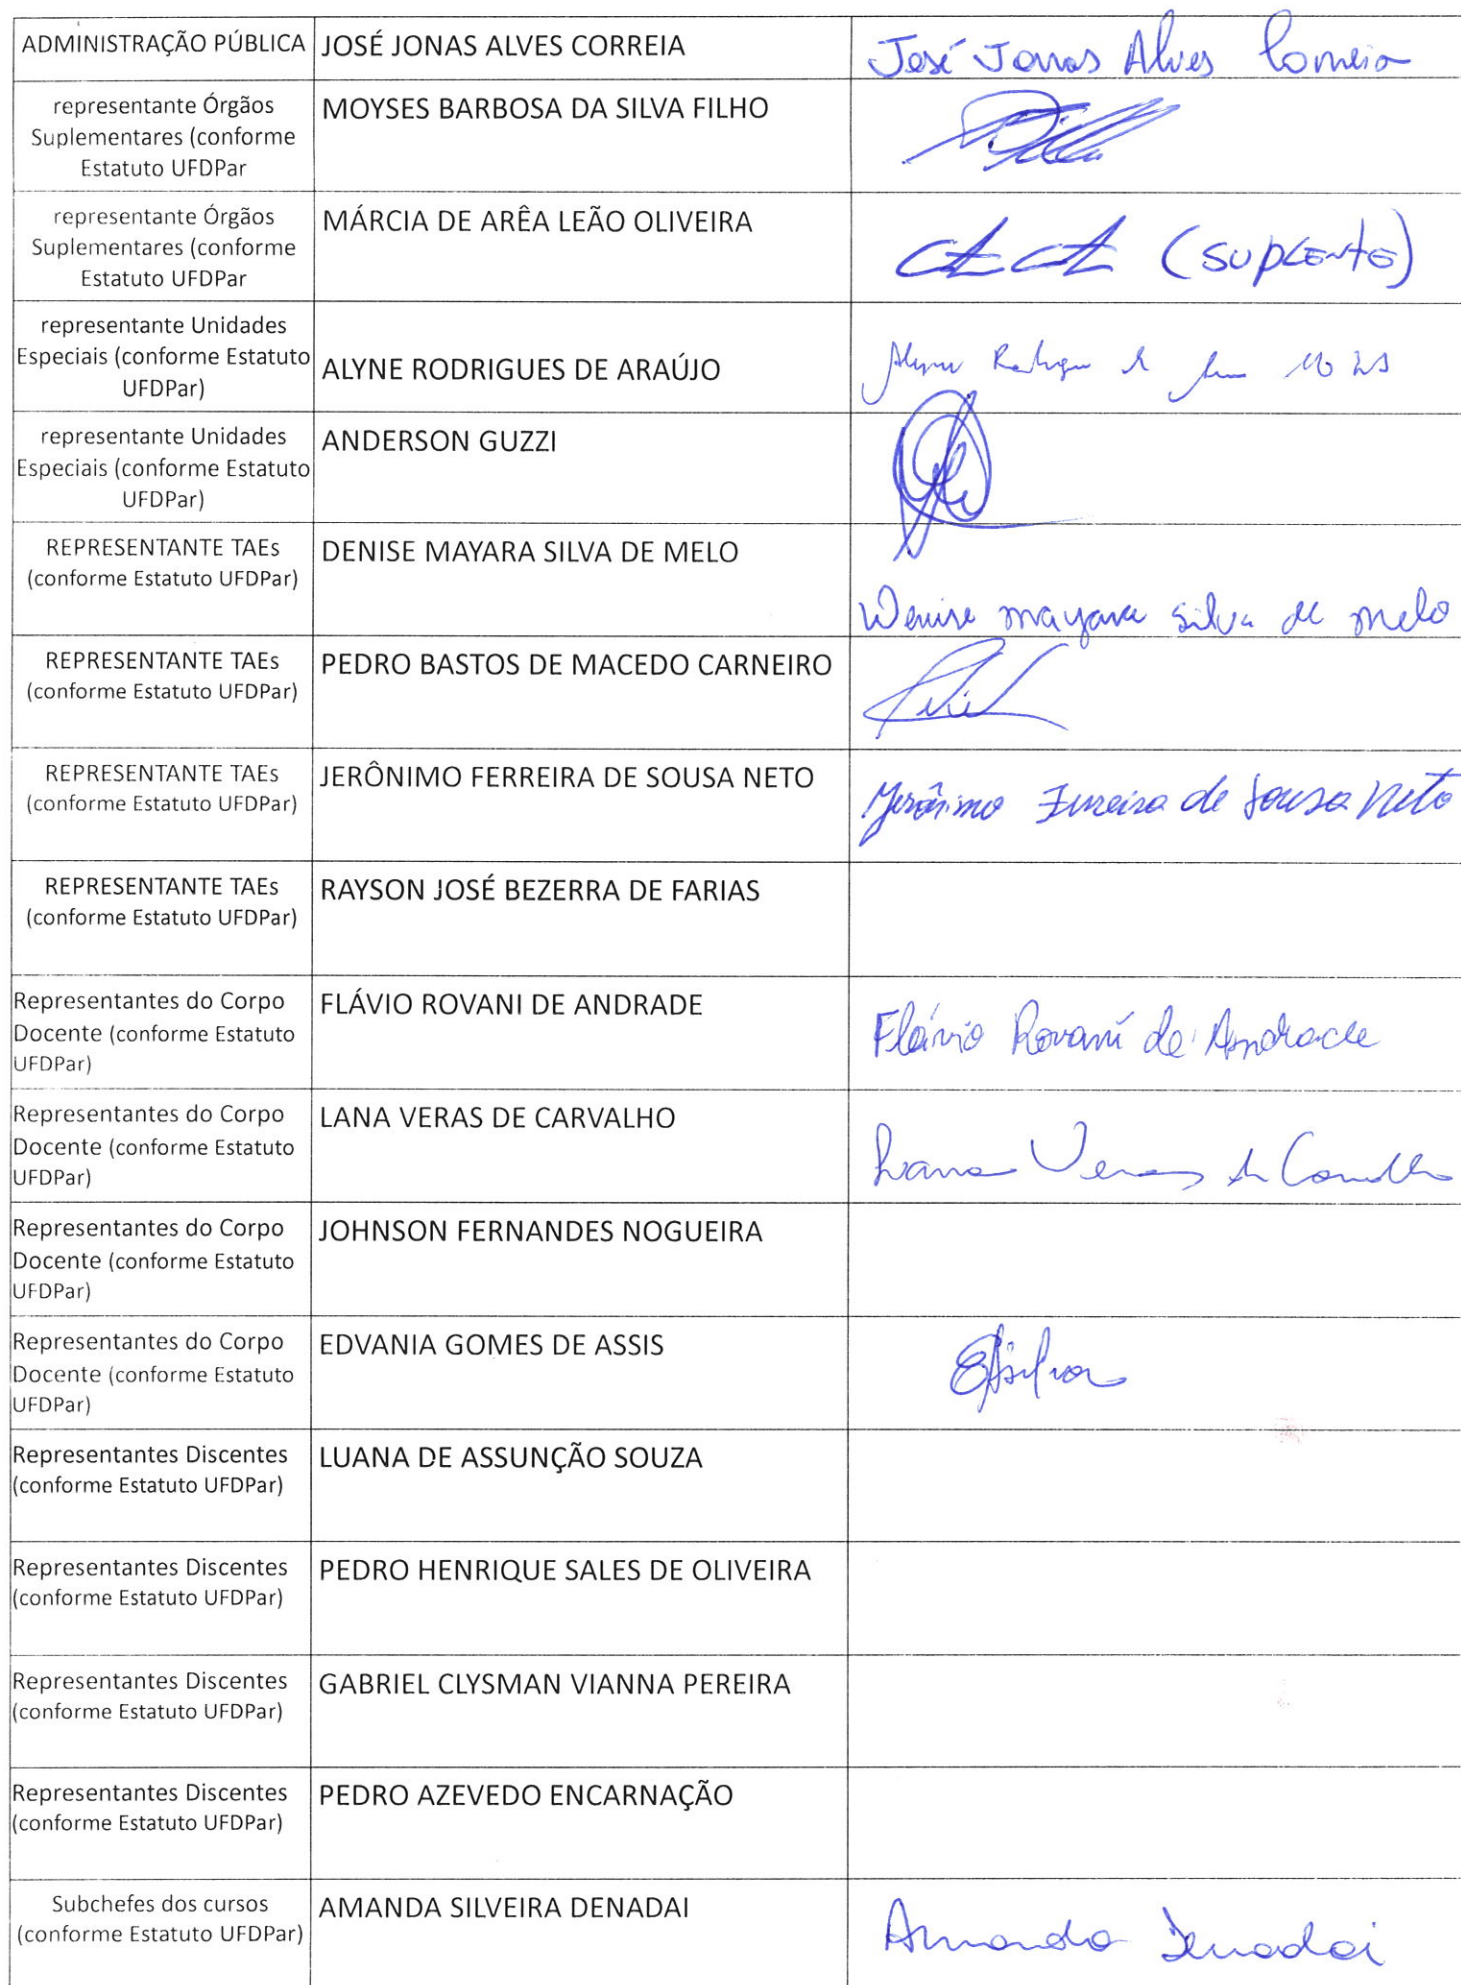 ADMINISTRAÇÃO PÚBLICA JOSÉ JONAS ALVES CORREIA José Jonas Alves Correia
representante Órgãos
Suplementares (conforme
Estatuto UFDPar
MOYSES BARBOSA DA SILVA FILHO
representante Órgãos
Suplementares (conforme
Estatuto UFDPar
MÁRCIA DE ARÊA LEÃO OLIVEIRA
(suplente)
representante Unidades
Especiais (conforme Estatuto
UFDPar)
ALYNE RODRIGUES DE ARAÚJO
Alyne Rodrigues de
representante Unidades
Especiais (conforme Estatuto
UFDPar)
ANDERSON GUZZI
REPRESENTANTE TAEs
(conforme Estatuto UFDPar)
DENISE MAYARA SILVA DE MELO
Denise mayara silva de melo
REPRESENTANTE TAEs
(conforme Estatuto UFDPar)
PEDRO BASTOS DE MACEDO CARNEIRO
REPRESENTANTE TAEs
(conforme Estatuto UFDPar)
JERÔNIMO FERREIRA DE SOUSA NETO
Jerônimo Ferreira de Sousa Neto
REPRESENTANTE TAEs
(conforme Estatuto UFDPar)
RAYSON JOSÉ BEZERRA DE FARIAS
Representantes do Corpo
Docente (conforme Estatuto
UFDPar)
FLÁVIO ROVANI DE ANDRADE
Flávio Rovani de Andrade
Representantes do Corpo
Docente (conforme Estatuto
UFDPar)
LANA VERAS DE CARVALHO
Lana Veras de Carvalho
Representantes do Corpo
Docente (conforme Estatuto
UFDPar)
JOHNSON FERNANDES NOGUEIRA
Representantes do Corpo
Docente (conforme Estatuto
UFDPar)
EDVANIA GOMES DE ASSIS
Representantes Discentes
(conforme Estatuto UFDPar)
LUANA DE ASSUNÇÃO SOUZA
Representantes Discentes
(conforme Estatuto UFDPar)
PEDRO HENRIQUE SALES DE OLIVEIRA
Representantes Discentes
(conforme Estatuto UFDPar)
GABRIEL CLYSMAN VIANNA PEREIRA
Representantes Discentes
(conforme Estatuto UFDPar)
PEDRO AZEVEDO ENCARNAÇÃO
Subchefes dos cursos
(conforme Estatuto UFDPar)
AMANDA SILVEIRA DENADAI
Amanda Denadai